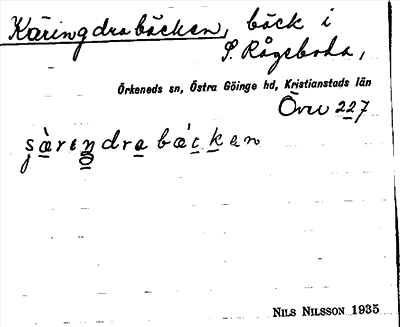 Käringdrabäcken, bäck i
S. Rågeboda,
Örkeneds sn, Östra Göinge hd, Kristianstads län
Övre 227
NILS NILSSON 1935